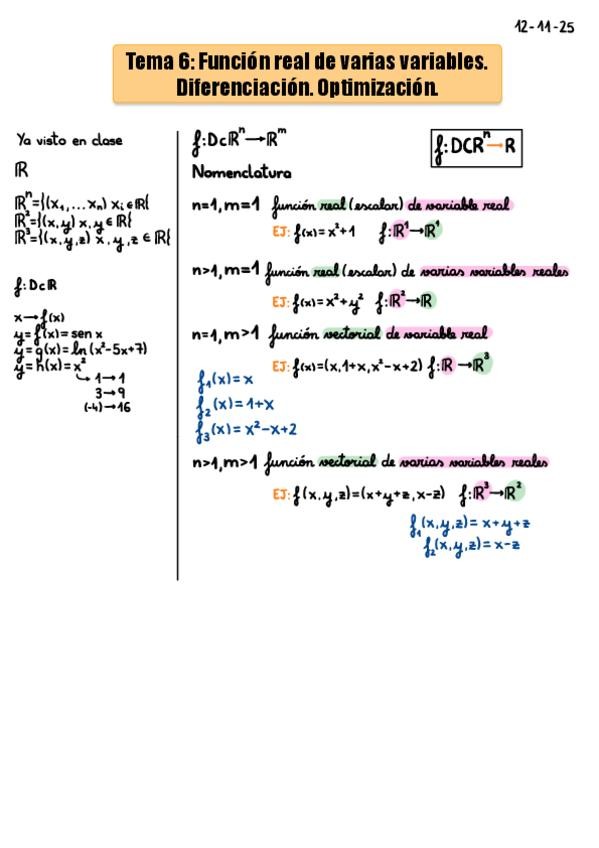 12-11-25
Tema 6: Función real de varias variables.
Diferenciación. Optimización.
Ya visto en clase
ℝ
ℝⁿ={(x₁,...xₙ) xᵢ∈ℝ{
ℝ²={(x,y) x,y∈ℝ}
ℝ³={(x,y,z) x,y,z ∈ ℝ}
f:D⊂ℝ
x→f(x)
y=f(x)=sen x
y=g(x)=ln(x²-5x+7)
y=h(x)=x²
1→1
3→9
(-4)→16
f:D⊂ℝⁿ→ℝᵐ
f:D⊂ℝⁿ→ℝ
Nomenclatura
n=1,m=1 función real (escalar) de variable real
EJ: f(x)=x²+1 f:ℝ¹→ℝ¹
n>1,m=1 función real (escalar) de varias variables reales
EJ: f(x)=x²+y² f:ℝ²→ℝ
n=1,m>1 función vectorial de variable real
EJ: f(x)=(x,1+x,x²-x+2) f:ℝ→ℝ³
f₁(x)=x
f₂(x)=1+x
f₃(x)=x²-x+2
n>1,m>1 función vectorial de varias variables reales
EJ: f(x,y,z)=(x+y+z,x-z) f:ℝ³→ℝ²
f₁(x,y,z)=x+y+z
f₂(x,y,z)=x-z